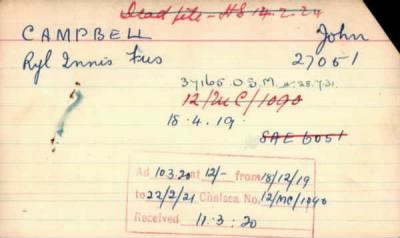 Dead file - HS 14.2.24
CAMPBELL John
Ryl Innis Fus 27051
37165.O.S.M. 28.7.21.
12/MC/1090
18.4.19.
SAE 6051
Ad 10.3.20 at 12/- from 18/12/19
to 22/2/21 Chelsea No. 12/MC/1090
Received 11.3.20